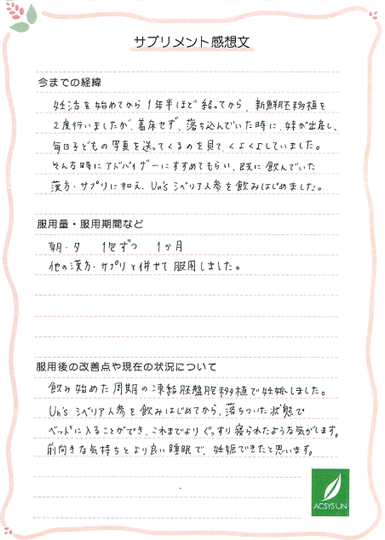 サプリメント感想文
今までの経緯
妊活を始めてから1年半ほど経ってから、新鮮胚移植を
2度行いましたが、着床せず、落ち込んでいた時に、妹が出産し、
毎日子どもの写真を送ってくるのを見て、くよくよしていました。
そんな時にアドバイザーにすすめてもらい、既に飲んでいた
漢方・サプリに加え、Un's シベリア人参を飲みはじめました。
服用量・服用期間など
朝・夕 1包ずつ 1か月
他の漢方・サプリと併せて服用しました。
服用後の改善点や現在の状況について
飲み始めた周期の凍結胚盤胞移植で妊娠しました。
Un's シベリア人参を飲みはじめてから、落ちついた状態で
ベッドに入ることができ、これまでよりぐっすり寝られたような気がします。
前向きな気持ちとより良い睡眠で、妊娠できたと思います。
ACSYSUN